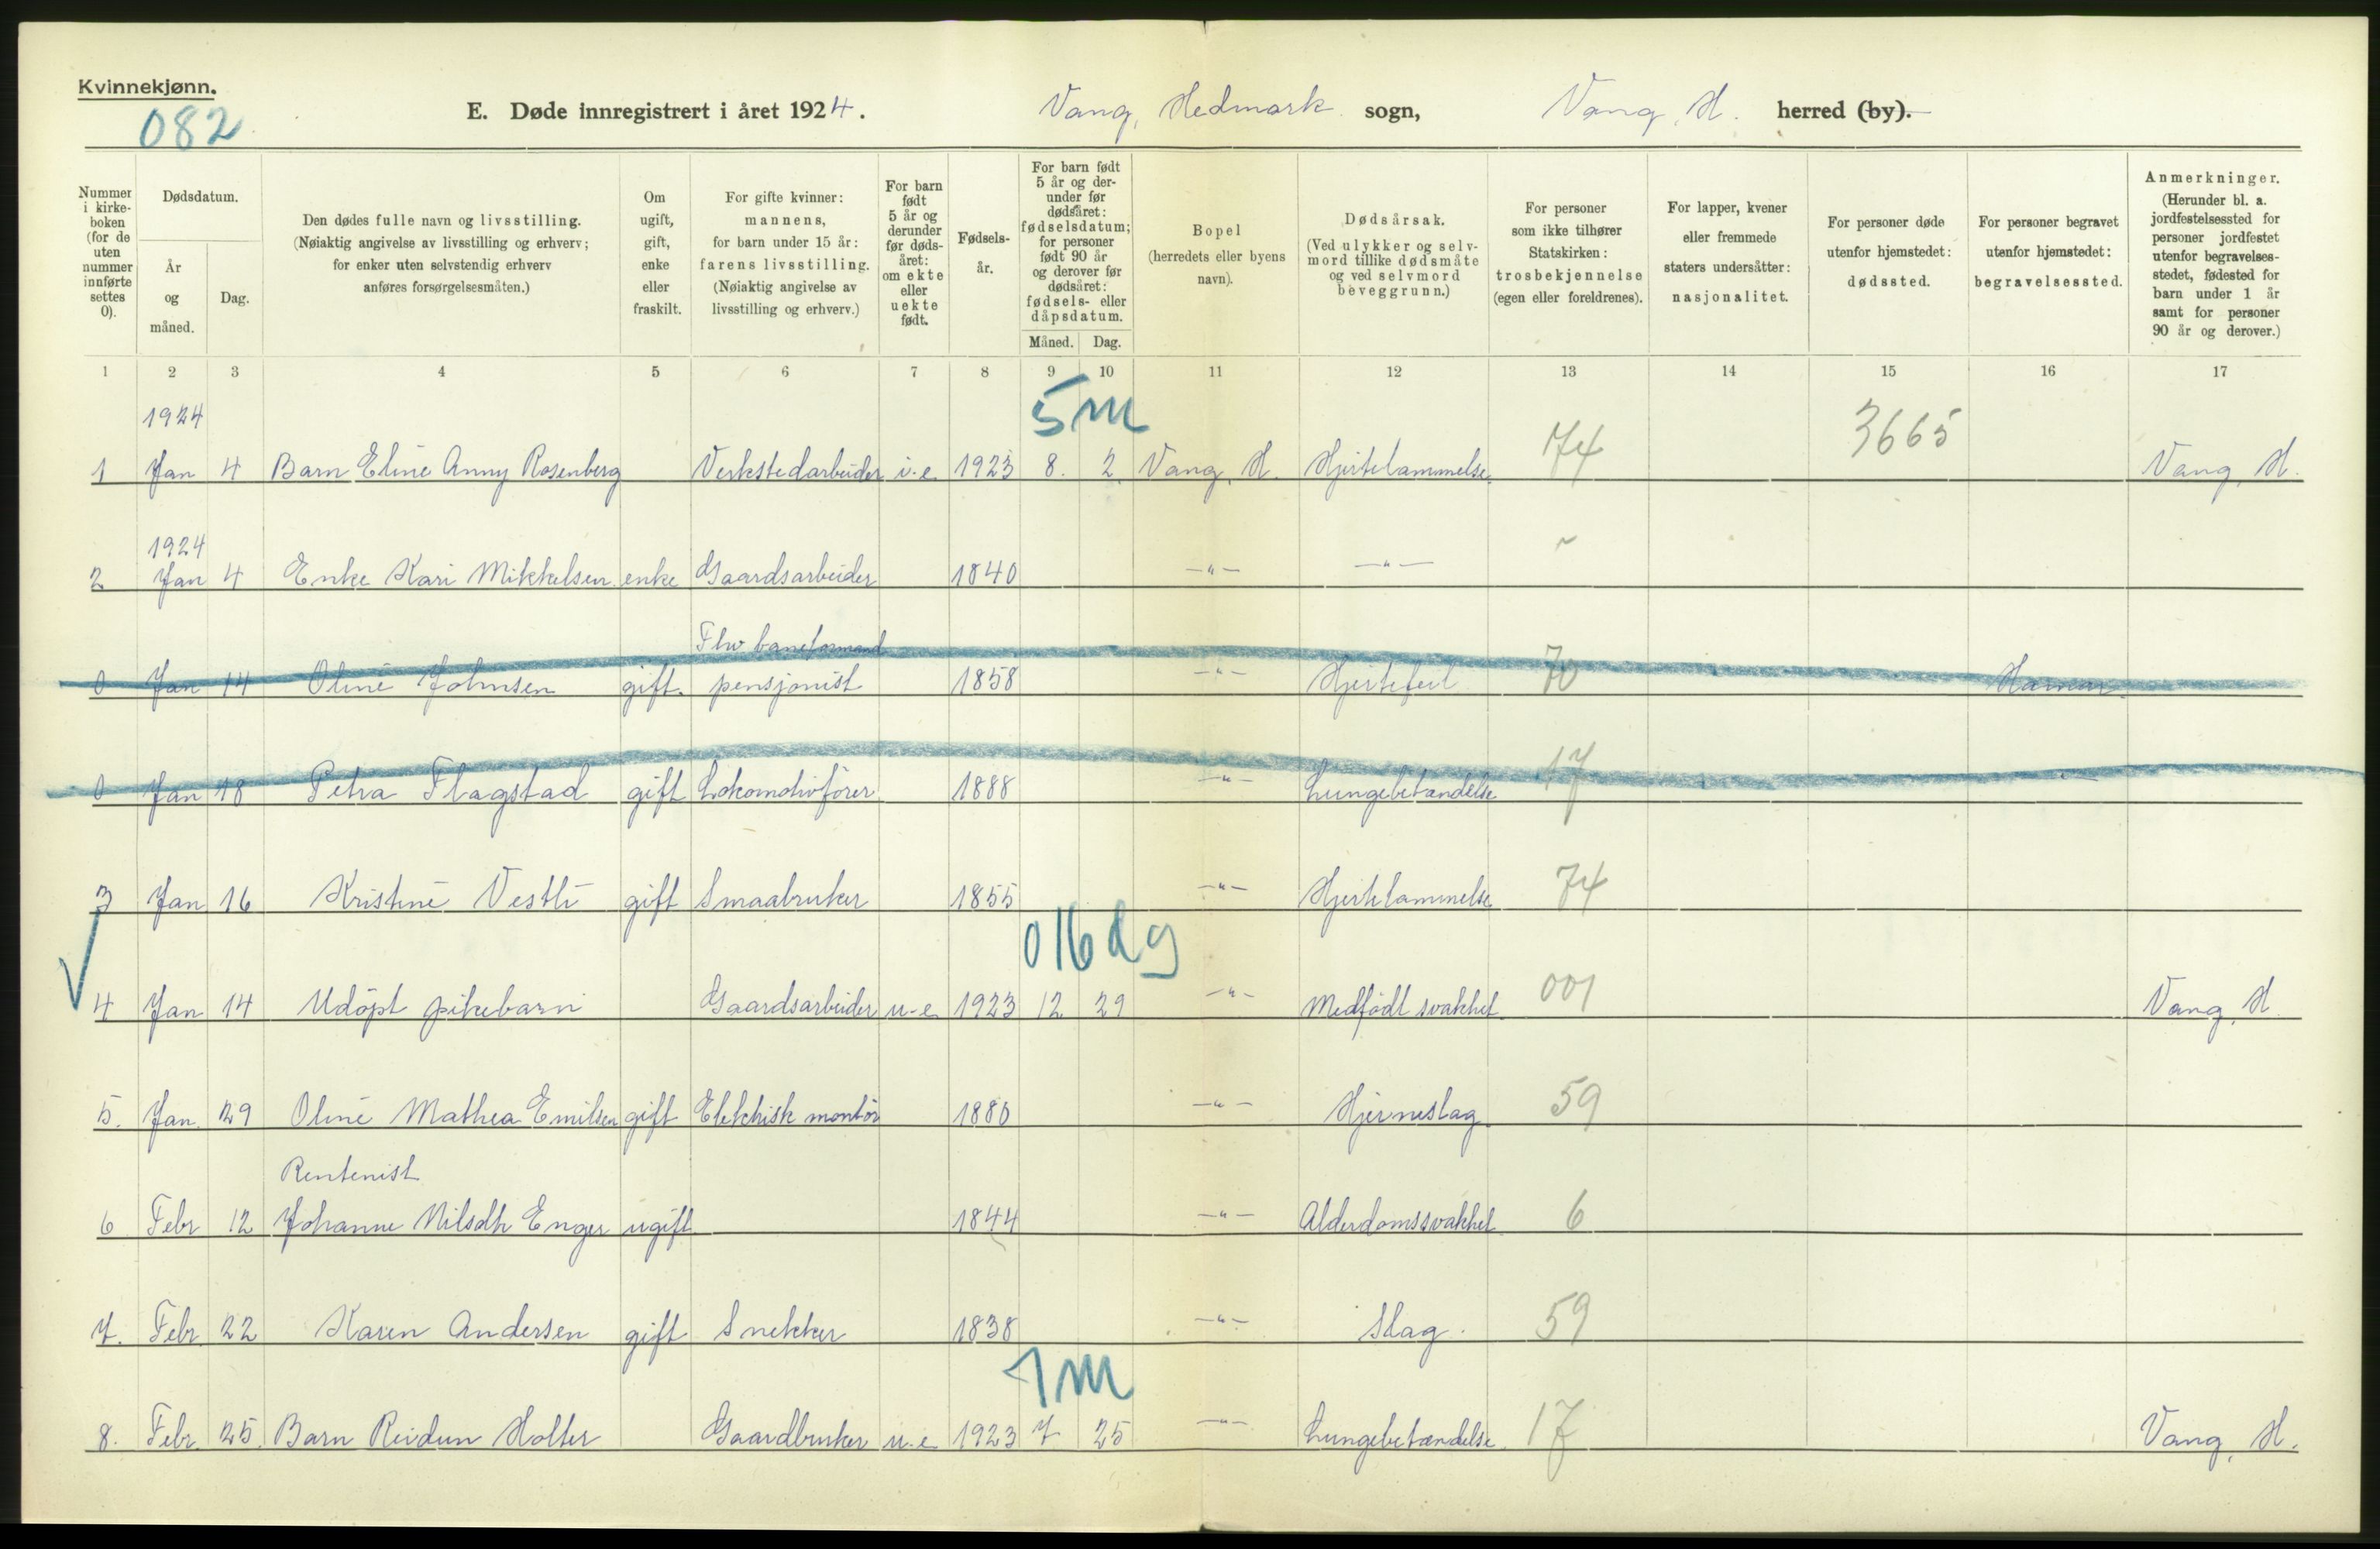 Kvinnekjønn.
082
E. Døde innregistrert i året 1924. Vang, Hedmark sogn, Vang, H. herred (by).
Nummer i kirkeboken (for de uten nummer innførte settes 0).
Dødsdatum.
År og måned.
Dag.
Den dødes fulle navn og livsstilling. (Nøiaktig angivelse av livsstilling og erhverv; for enker uten selvstendig erhverv anføres forsørgelsesmåten.)
Om ugift, gift, enke eller fraskilt.
For gifte kvinner: mannens, for barn under 15 år: farens livsstilling. (Nøiaktig angivelse av livsstilling og erhverv.)
For barn født 5 år og derunder før dødsåret: om ekte eller uekte født.
Fødselsår.
For barn født 5 år og derunder før dødsåret: fødselsdatum; for personer født 90 år og derover før dødsåret: fødsels- eller dåpsdatum.
Måned. Dag.
Bopel (herredets eller byens navn).
Dødsårsak. (Ved ulykker og selvmord tillike dødsmåte og ved selvmord beveggrunn.)
For personer som ikke tilhører Statskirken: trosbekjennelse (egen eller foreldrenes).
For lapper, kvener eller fremmede staters undersåtter: nasjonalitet.
For personer døde utenfor hjemstedet: dødssted.
For personer begravet utenfor hjemstedet: begravelsessted.
Anmerkninger. (Herunder bl. a. jordfestelsessted for personer jordfestet utenfor begravelsesstedet, fødested for barn under 1 år samt for personer 90 år og derover.)
1 2 3 4 5 6 7 8 9 10 11 12 13 14 15 16 17
1924 5 m 3665
1 Jan 4 Barn Eline Anny Rosenberg Verkstedarbeider i.e. 1923 8. 2. Vang, H. Hjertelammelse. 74 Vang, H.
1924
2 Jan 4 Enke Kari Mikkelsen enke Gaardsarbeider 1840 -"- -"- ~
Fhv. baneformand
0 Jan 14 Oline Johnsen gift. pensjonist 1858 -"- Hjertefeil 70 Hamar
0 Jan 18 Petra Flagstad gift Lokomotivfører 1888 -"- Lungebetændelse 17 -"-
3 Jan 16 Kristine Vestli gift Smaabruker 1855 -"- Hjertelammelse 74
016 dg
4 Jan 14 Udøpt pikebarn Gaardsarbeider u-e 1923 12 29 -"- Medfødt svakhet 001 Vang, H
5. Jan. 29 Oline Mathea Emilsen gift Elektrisk montør 1880 -"- Hjerneslag 59
Rentenist
6 Febr 12 Johanne Nilsdtr Enger ugift 1844 -"- Alderdomssvakhet 6
7. Febr. 22 Karen Andersen gift Snekker 1838 -"- Slag. 59
7 m
8. Febr. 25. Barn Reidun Holter Gaardbruker u.e. 1923 7 25 -"- Lungebetændelse. 17 Vang, H.